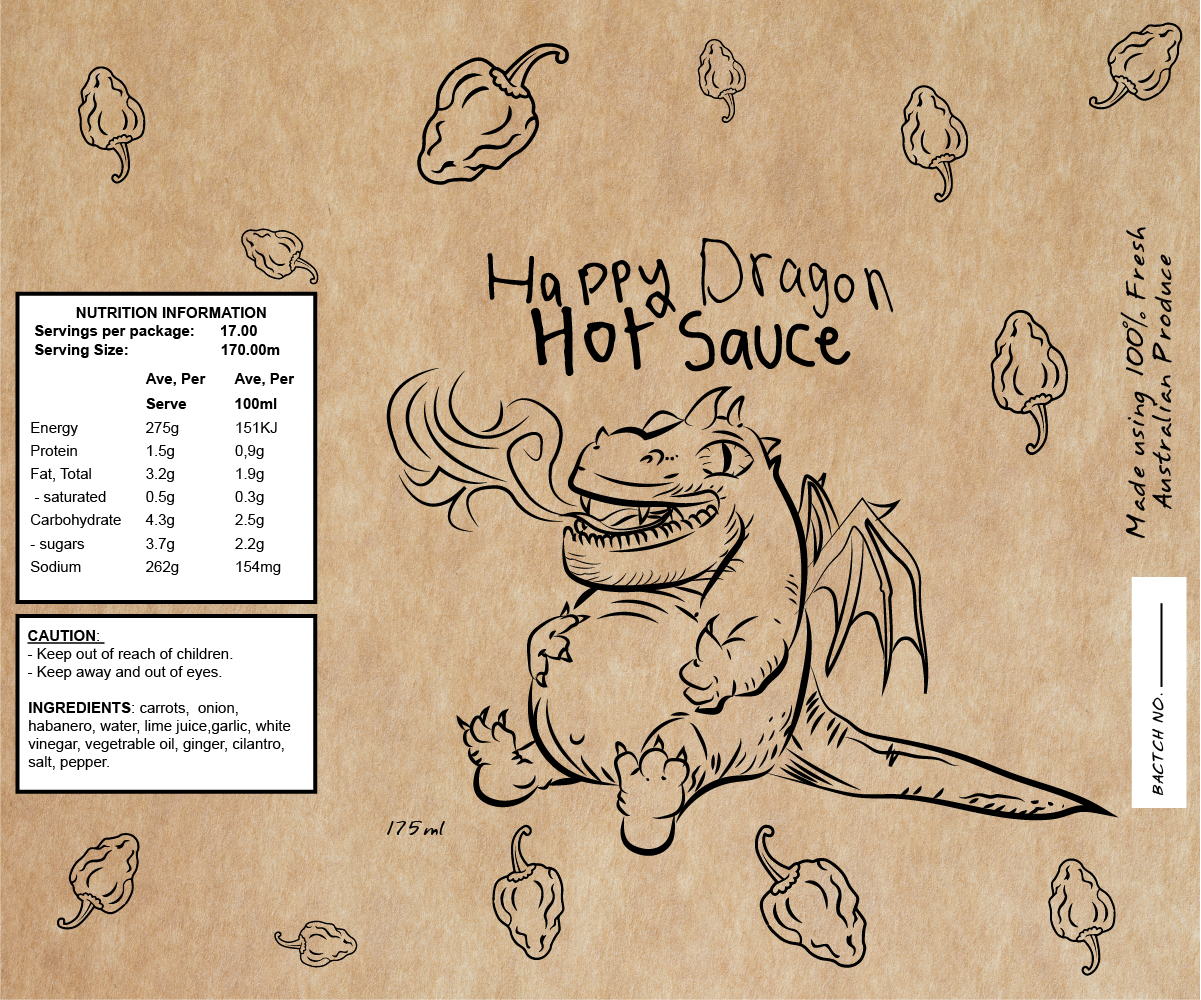 Happy Dragon
Hot Sauce
NUTRITION INFORMATION
Servings per package: 17.00
Serving Size: 170.00m
Ave, Per Ave, Per
Serve 100ml
Energy 275g 151KJ
Protein 1.5g 0,9g
Fat, Total 3.2g 1.9g
- saturated 0.5g 0.3g
Carbohydrate 4.3g 2.5g
- sugars 3.7g 2.2g
Sodium 262g 154mg
CAUTION:
- Keep out of reach of children.
- Keep away and out of eyes.
INGREDIENTS: carrots, onion,
habanero, water, lime juice,garlic, white
vinegar, vegetrable oil, ginger, cilantro,
salt, pepper.
175ml
Made using 100% Fresh
Australian Produce
BACTCH NO. ________